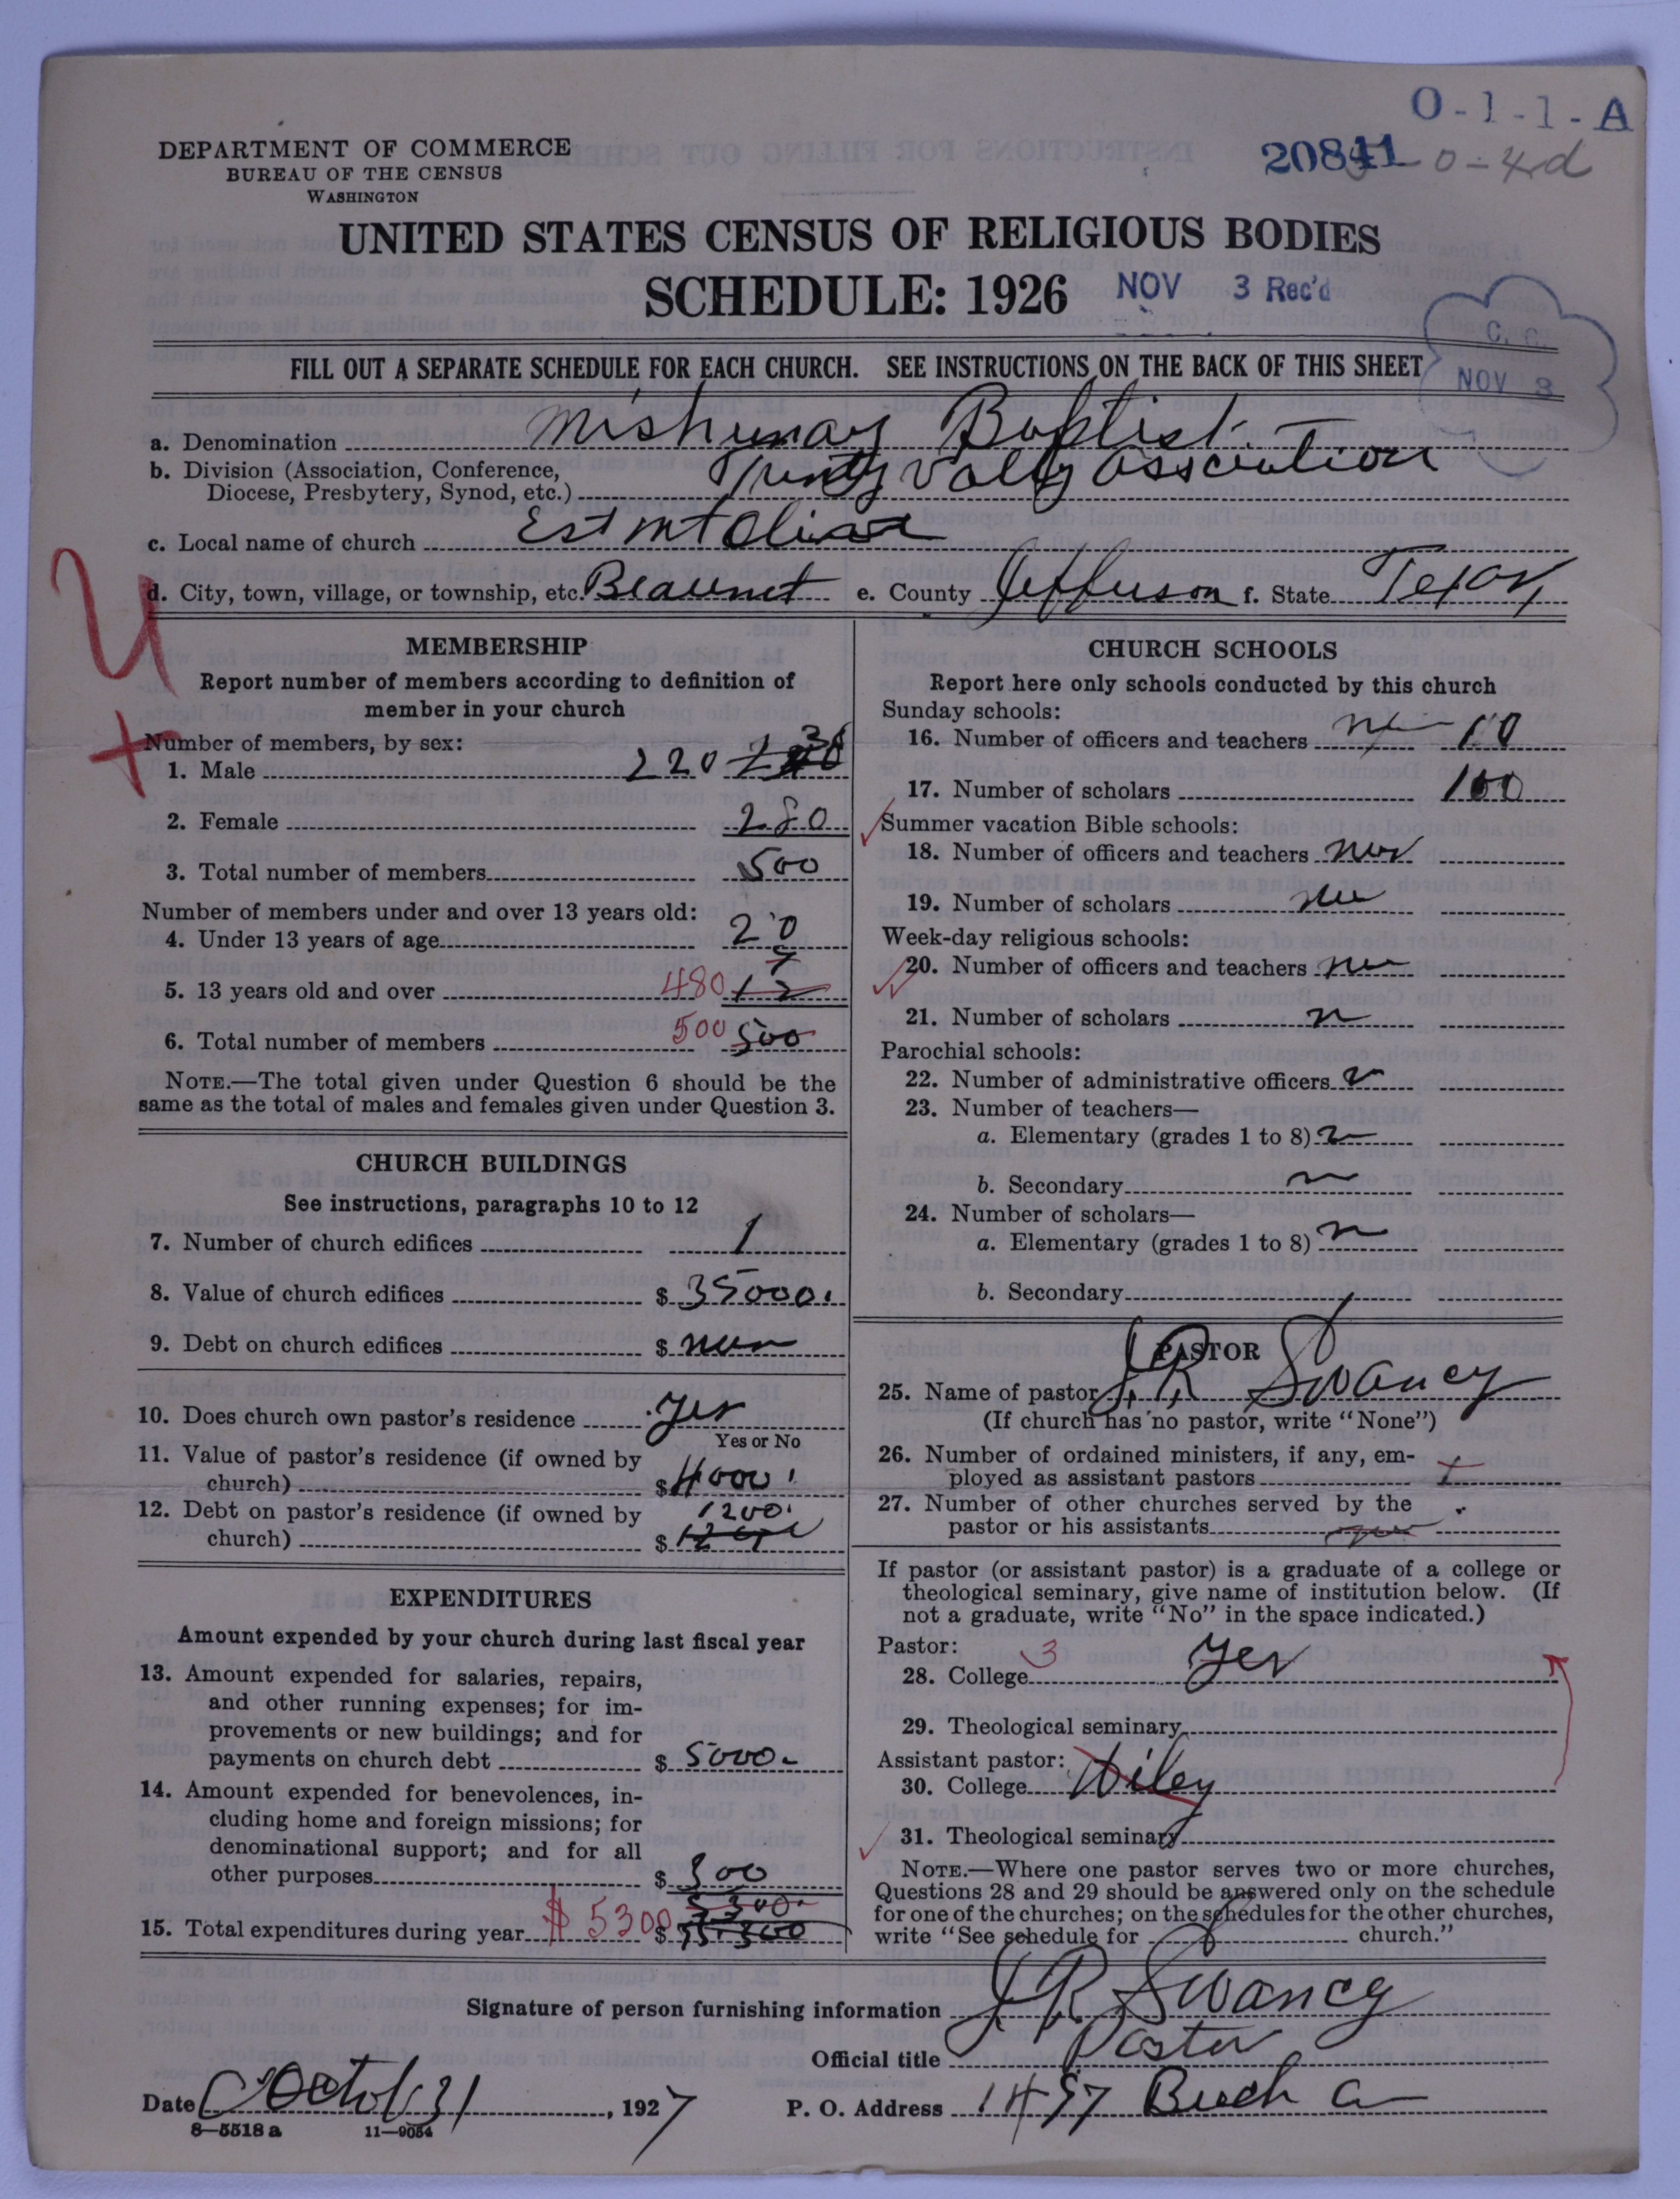 O-1-1-A
20841 0-4d
DEPARTMENT OF COMMERCE
BUREAU OF THE CENSUS
WASHINGTON
UNITED STATES CENSUS OF RELIGIOUS BODIES
SCHEDULE: 1926 NOV 3 Rec'd
C. C.
NOV 8
FILL OUT A SEPARATE SCHEDULE FOR EACH CHURCH. SEE INSTRUCTIONS ON THE BACK OF THIS SHEET
a. Denomination Baptist
b. Division (Association, Conference,
Diocese, Presbytery, Synod, etc.) Association
c. Local name of church
d. City, town, village, or township, etc. e. County Jefferson f. State Texas
MEMBERSHIP
Report number of members according to definition of
member in your church
Number of members, by sex:
1. Male 220
2. Female 280
3. Total number of members 500
Number of members under and over 13 years old:
4. Under 13 years of age 20
5. 13 years old and over 480
6. Total number of members 500 500
NOTE.—The total given under Question 6 should be the
same as the total of males and females given under Question 3.
CHURCH BUILDINGS
See instructions, paragraphs 10 to 12
7. Number of church edifices 1
8. Value of church edifices $ 35000.
9. Debt on church edifices $
10. Does church own pastor's residence yes
Yes or No
11. Value of pastor's residence (if owned by
church) $ 4000
12. Debt on pastor's residence (if owned by 1200.
church) $
EXPENDITURES
Amount expended by your church during last fiscal year
13. Amount expended for salaries, repairs,
and other running expenses; for im-
provements or new buildings; and for
payments on church debt $ 5000
14. Amount expended for benevolences, in-
cluding home and foreign missions; for
denominational support; and for all
other purposes $ 300
15. Total expenditures during year $ 5300 $
CHURCH SCHOOLS
Report here only schools conducted by this church
Sunday schools:
16. Number of officers and teachers 10
17. Number of scholars 100
Summer vacation Bible schools:
18. Number of officers and teachers
19. Number of scholars
Week-day religious schools:
20. Number of officers and teachers
21. Number of scholars
Parochial schools:
22. Number of administrative officers
23. Number of teachers—
a. Elementary (grades 1 to 8)
b. Secondary
24. Number of scholars—
a. Elementary (grades 1 to 8)
b. Secondary
PASTOR
25. Name of pastor J. R. Swancy
(If church has no pastor, write "None")
26. Number of ordained ministers, if any, em-
ployed as assistant pastors
27. Number of other churches served by the
pastor or his assistants
If pastor (or assistant pastor) is a graduate of a college or
theological seminary, give name of institution below. (If
not a graduate, write "No" in the space indicated.)
Pastor: 3
28. College Yes
29. Theological seminary
Assistant pastor:
30. College Wiley
31. Theological seminary
NOTE.—Where one pastor serves two or more churches,
Questions 28 and 29 should be answered only on the schedule
for one of the churches; on the schedules for the other churches,
write "See schedule for church."
Signature of person furnishing information J R Swancy
Official title Pastor
Date Octob 31, 1927 P. O. Address
8—5518 a 11—9054